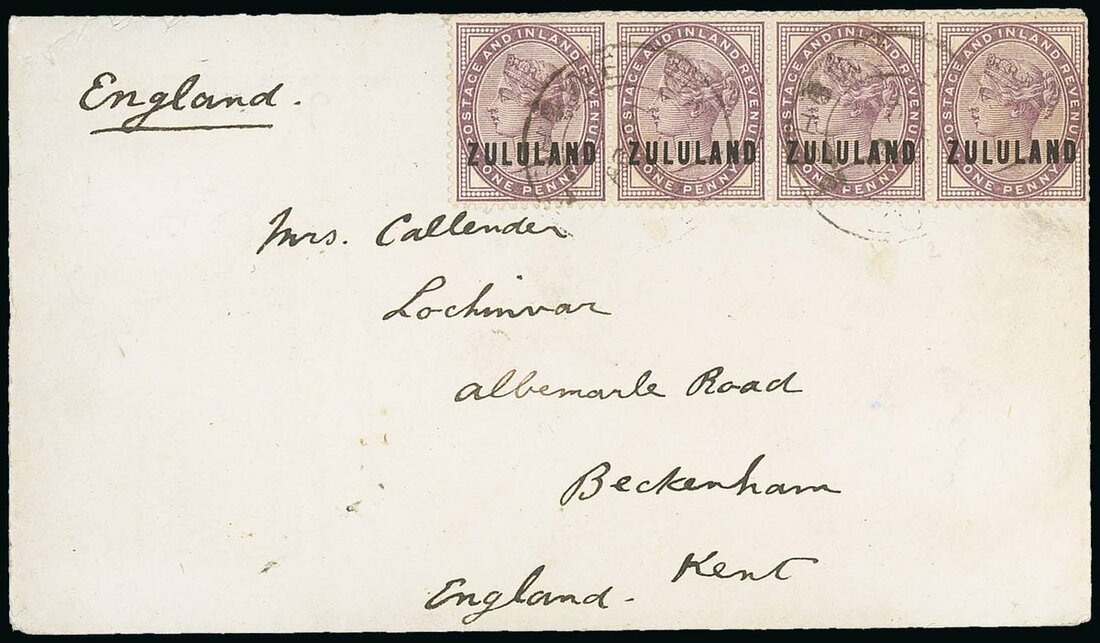 POSTAGE AND INLAND REVENUE POSTAGE AND INLAND REVENUE POSTAGE AND INLAND REVENUE POSTAGE AND INLAND REVENUE
ZULULAND ZULULAND ZULULAND ZULULAND
ONE PENNY ONE PENNY ONE PENNY ONE PENNY
England.
Mrs. Callender
Lochinvar
Albemarle Road
Beckenham
Kent
England.